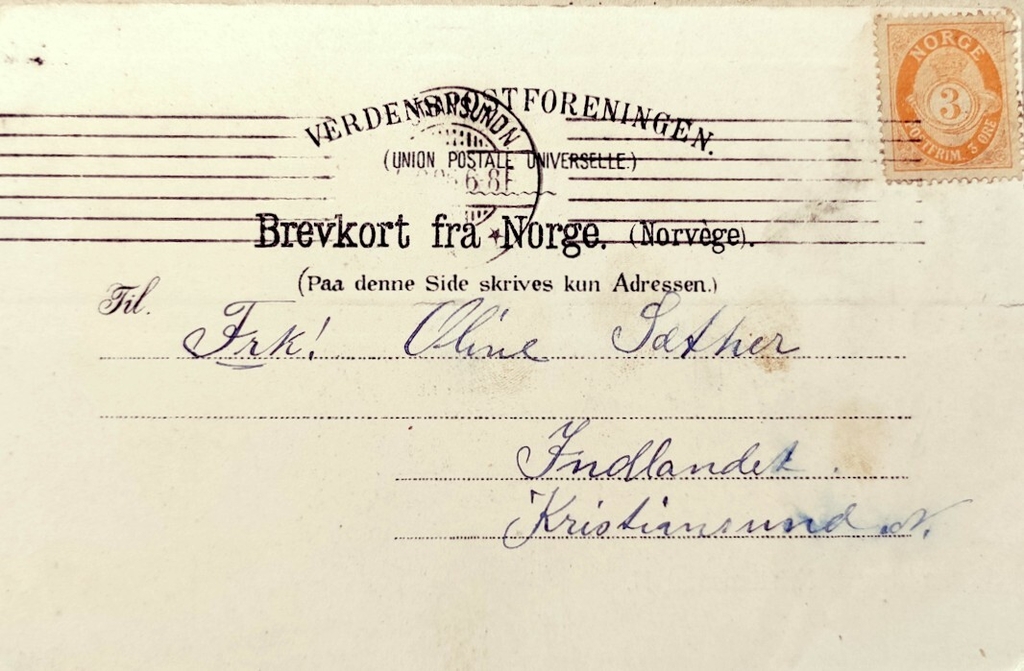 NORGE
3
POSTFRIM. 3 ØRE
VERDENSPOSTFORENINGEN.
(UNION POSTALE UNIVERSELLE.)
6-8 F
Brevkort fra Norge. (Norvège).
(Paa denne Side skrives kun Adressen.)
Til.
Frk! Oline Sæther
Indlandet.
Kristiansund N.